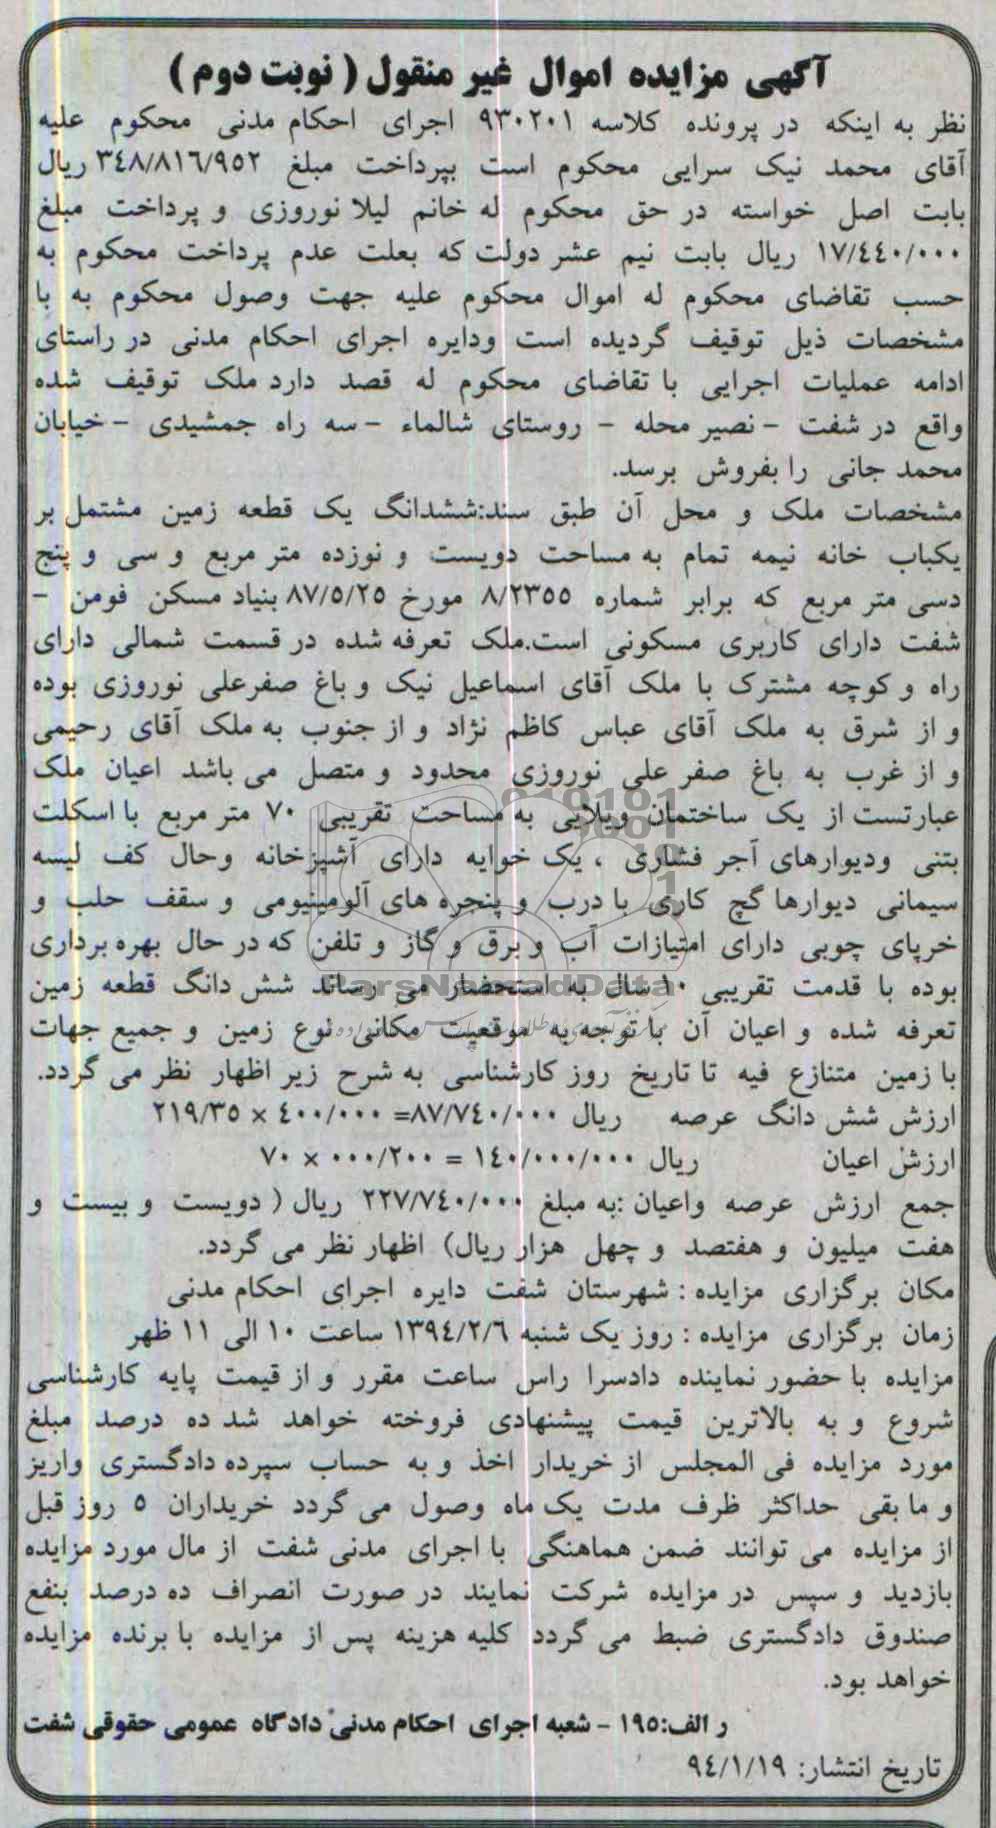 آگهی مزایده اموال غیر منقول ( نوبت دوم )
نظر به اینکه در پرونده کلاسه ۹۳۰۲۰۱ اجرای احکام مدنی محکوم علیه
آقای محمد نیک سرایی محکوم است بپرداخت مبلغ ۳٤۸/۸۱٦/۹٥۲ ریال
بابت اصل خواسته در حق محکوم له خانم لیلا نوروزی و پرداخت مبلغ
۱۷/٤٤۰/۰۰۰ ریال بابت نیم عشر دولت که بعلت عدم پرداخت محکوم به
حسب تقاضای محکوم له اموال محکوم علیه جهت وصول محکوم به با
مشخصات ذیل توقیف گردیده است ودایره اجرای احکام مدنی در راستای
ادامه عملیات اجرایی با تقاضای محکوم له قصد دارد ملک توقیف شده
واقع در شفت - نصیر محله - روستای شالماء - سه راه جمشیدی - خیابان
محمد جانی را بفروش برسد.
مشخصات ملک و محل آن طبق سند:ششدانگ یک قطعه زمین مشتمل بر
یکباب خانه نیمه تمام به مساحت دویست و نوزده متر مربع و سی و پنج
دسی متر مربع که برابر شماره ۸/۲۳٥٥ مورخ ۸۷/٥/۲٥ بنیاد مسکن فومن -
شفت دارای کاربری مسکونی است.ملک تعرفه شده در قسمت شمالی دارای
راه و کوچه مشترک با ملک آقای اسماعیل نیک و باغ صفرعلی نوروزی بوده
و از شرق به ملک آقای عباس کاظم نژاد و از جنوب به ملک آقای رحیمی
و از غرب به باغ صفر علی نوروزی محدود و متصل می باشد اعیان ملک
عبارتست از یک ساختمان ویلایی به مساحت تقریبی ۷۰ متر مربع با اسکلت
بتنی ودیوارهای آجر فشاری ، یک خوابه دارای آشپزخانه وحال کف لیسه
سیمانی دیوارها گچ کاری با درب و پنجره های آلومینیومی و سقف حلب و
خرپای چوبی دارای امتیازات آب و برق و گاز و تلفن که در حال بهره برداری
بوده با قدمت تقریبی ۱۰ سال به استحضار می رساند شش دانگ قطعه زمین
ParsNamadData
تعرفه شده و اعیان آن با توجه به موقعیت مکانی نوع زمین و جمیع جهات
با زمین متنازع فیه تا تاریخ روز کارشناسی به شرح زیر اظهار نظر می گردد.
ارزش شش دانگ عرصه ریال ۸۷/۷٤۰/۰۰۰= ٤۰۰/۰۰۰ × ۲۱۹/۳٥
ارزش اعیان ریال ۱٤۰/۰۰۰/۰۰۰ = ۰۰۰/۲۰۰ × ۷۰
جمع ارزش عرصه واعیان :به مبلغ ۲۲۷/۷٤۰/۰۰۰ ریال ( دویست و بیست و
هفت میلیون و هفتصد و چهل هزار ریال) اظهار نظر می گردد.
مکان برگزاری مزایده : شهرستان شفت دایره اجرای احکام مدنی
زمان برگزاری مزایده : روز یک شنبه ۱۳۹٤/۲/٦ ساعت ۱۰ الی ۱۱ ظهر
مزایده با حضور نماینده دادسرا راس ساعت مقرر و از قیمت پایه کارشناسی
شروع و به بالاترین قیمت پیشنهادی فروخته خواهد شد ده درصد مبلغ
مورد مزایده فی المجلس از خریدار اخذ و به حساب سپرده دادگستری واریز
و ما بقی حداکثر ظرف مدت یک ماه وصول می گردد خریداران ٥ روز قبل
از مزایده می توانند ضمن هماهنگی با اجرای مدنی شفت از مال مورد مزایده
بازدید و سپس در مزایده شرکت نمایند در صورت انصراف ده درصد بنفع
صندوق دادگستری ضبط می گردد کلیه هزینه پس از مزایده با برنده مزایده
خواهد بود.
ر الف:۱۹٥ - شعبه اجرای احکام مدنی دادگاه عمومی حقوقی شفت
تاریخ انتشار: ۹٤/۱/۱۹